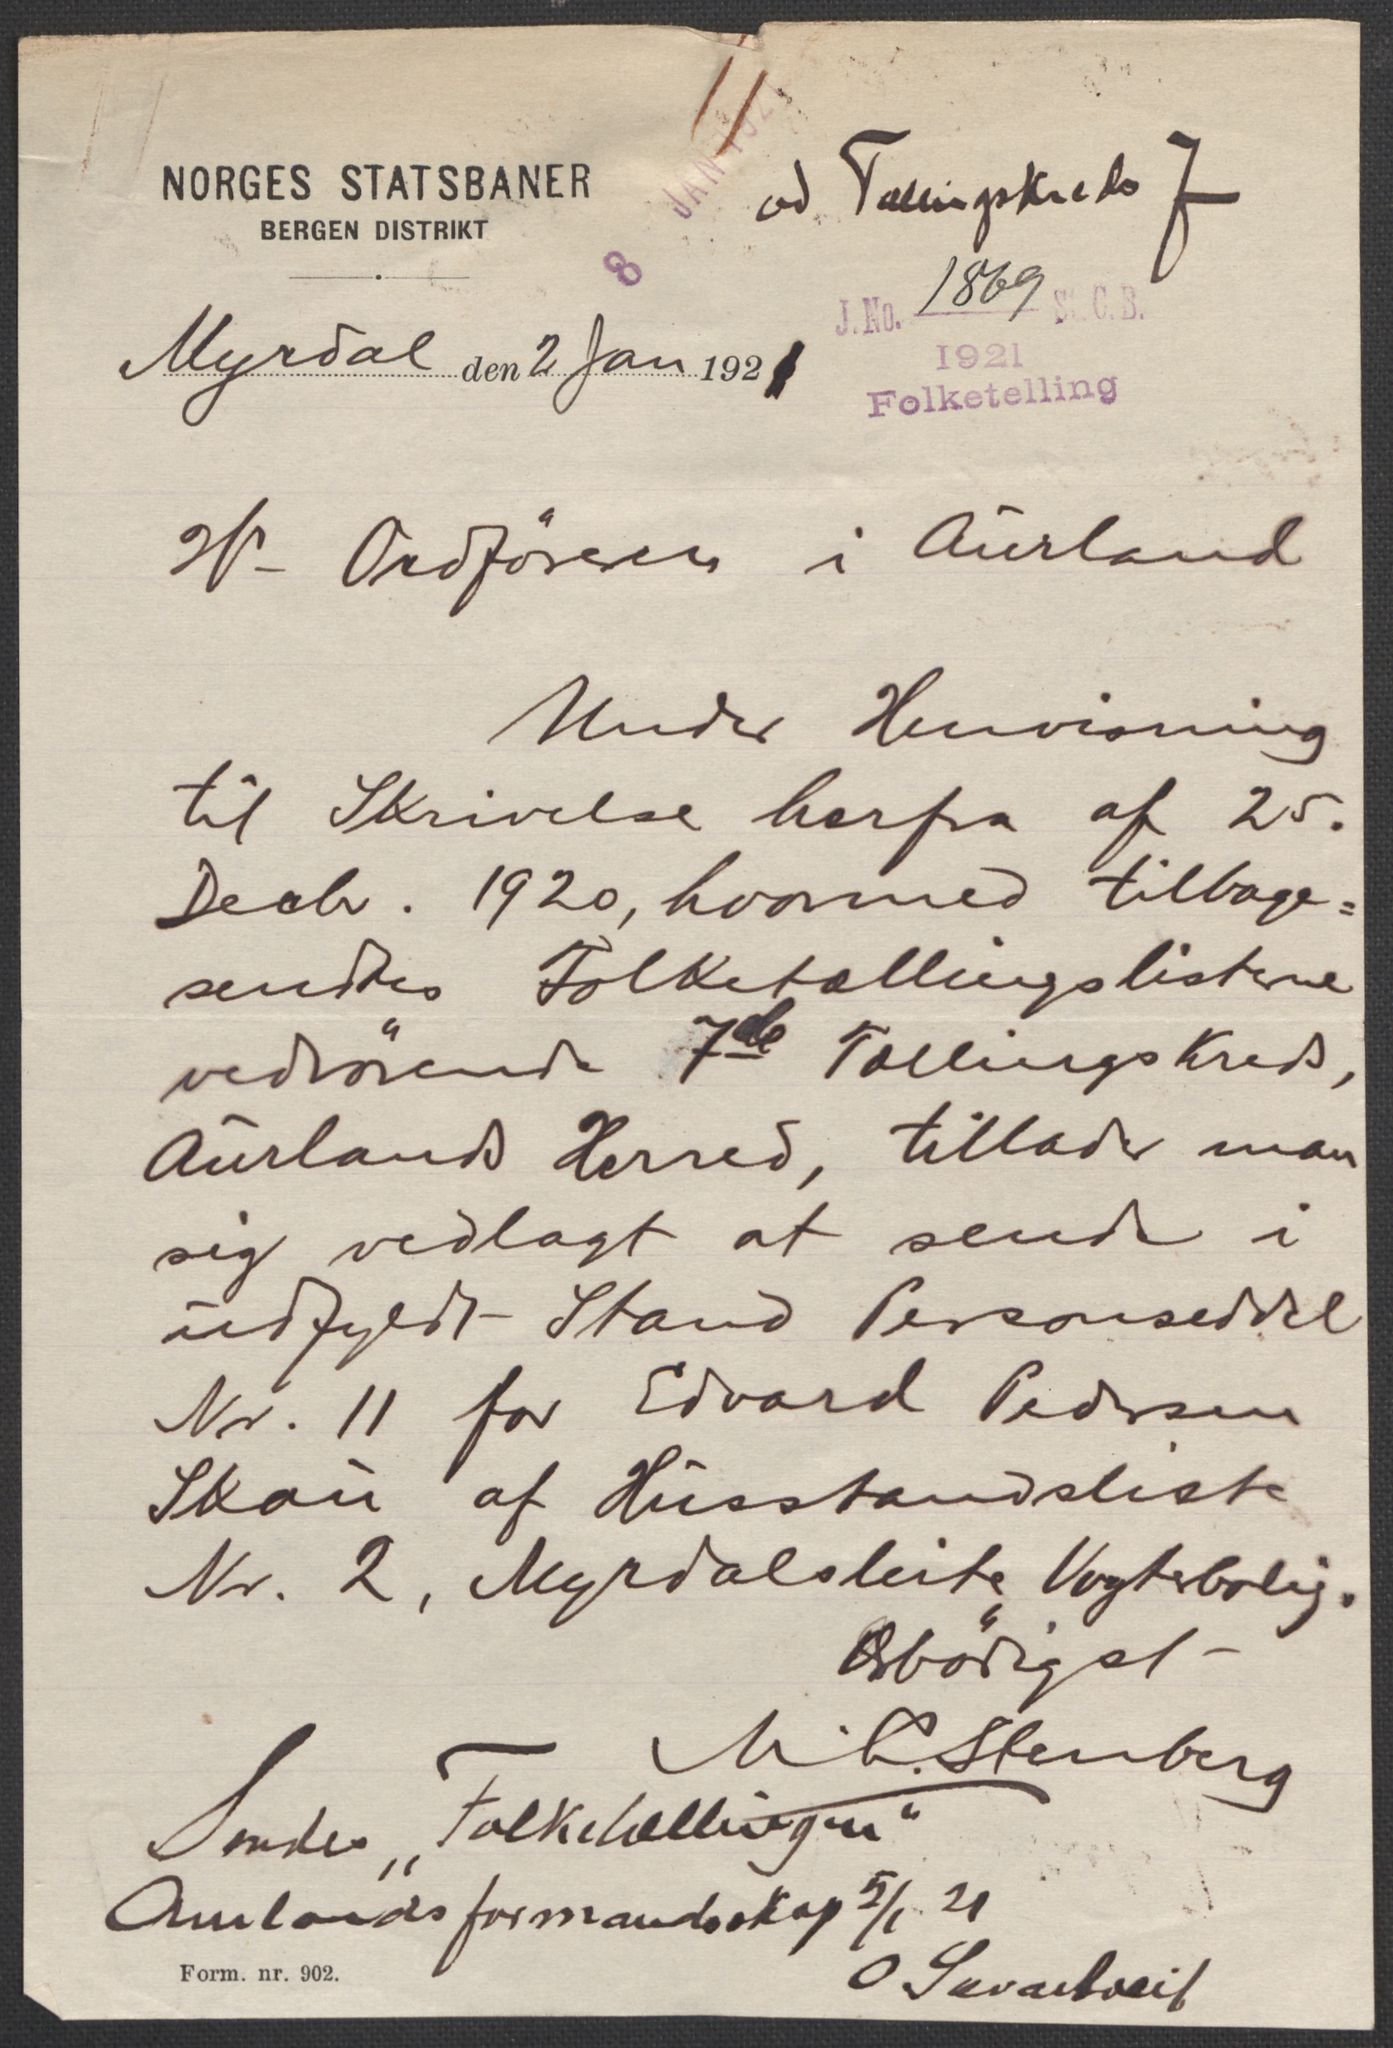 NORGES STATSBANER
BERGEN DISTRIKT
8 JAN 192
ad Tællingskreds 7
J.No. 1869 St. C. B.
1921
Folketelling
Myrdal den 2 Jan 1921
Hr Ordföreren i Aürland
Under Henvisning
til Skrivelse herfra af 25.
Decbr. 1920, hvormed tilbage=
sendtes Folketællingslisterne
vedrörende 7de Tællingskreds,
Aürlands Herred, tillader man
sig vedlagt at sende i
üdfyldt Stand Personseddel
Nr. 11 for Edvard Pedersen
Skaü af Hüsstandsliste
Nr. 2, Myrdalsleite Vogterbolig.
Ærbödigst
M. C. Stenberg
Sendes „Folketællingen"
Aurlands formandsskap 5/1 21
O
Form. nr. 902.